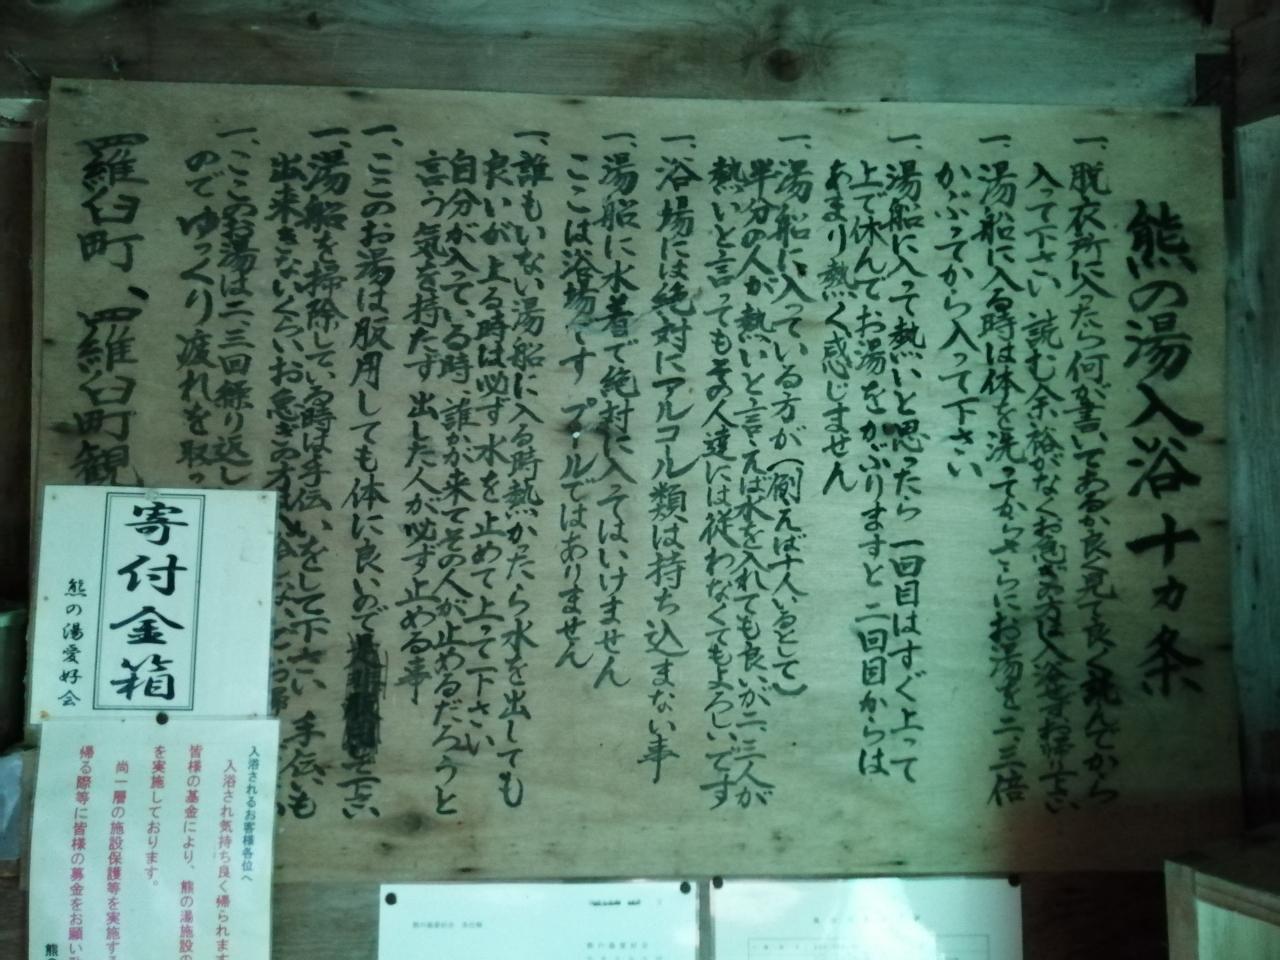 熊の湯入浴十カ条
一、脱衣所に入ったら何が書いてあるか良く見て良く読んでから
入って下さい 読む余裕がなくお急ぎの方は入浴せずお帰り下さい
一、湯船に入る時は体を洗ってからさらにお湯を二、三倍
かぶってから入って下さい
一、湯船に入って熱いと思ったら一回目はすぐ上って
上で休んでお湯をかぶりますと二回目からは
あまり熱く感じません
一、湯船に入っている方が(例えば十人いるとして)
半分の人が熱いと言えば水を入れても良いが二、三人が
熱いと言ってもその人達には従わなくてもよろしいです
一、浴場には絶対にアルコール類は持ち込まない事
一、湯船に水着で絶対に入ってはいけません
ここは浴場です プールではありません
一、誰もいない湯船に入る時熱かったら水を出しても
良いが上る時は必ず水を止めて上って下さい
自分が入っている時誰かが来てその人が止めるだろうと
言う気を持たず出した人が必ず止める事
一、ここのお湯は服用しても体に良いので 下さい
一、湯船を掃除している時は手伝いをして下さい 手伝いも
出来きないくらいお急ぎの方は
一、ここのお湯は二、三回繰り返し
のでゆっくり疲れを取っ
羅臼町、羅臼町観
寄付金箱
熊の湯愛好会
入浴されるお客様各位へ
入浴され気持ち良く帰られます
皆様の基金により、熊の湯施設の
を実施しております。
尚一層の施設保護等を実施する
帰る際等に皆様の募金をお願い
熊の